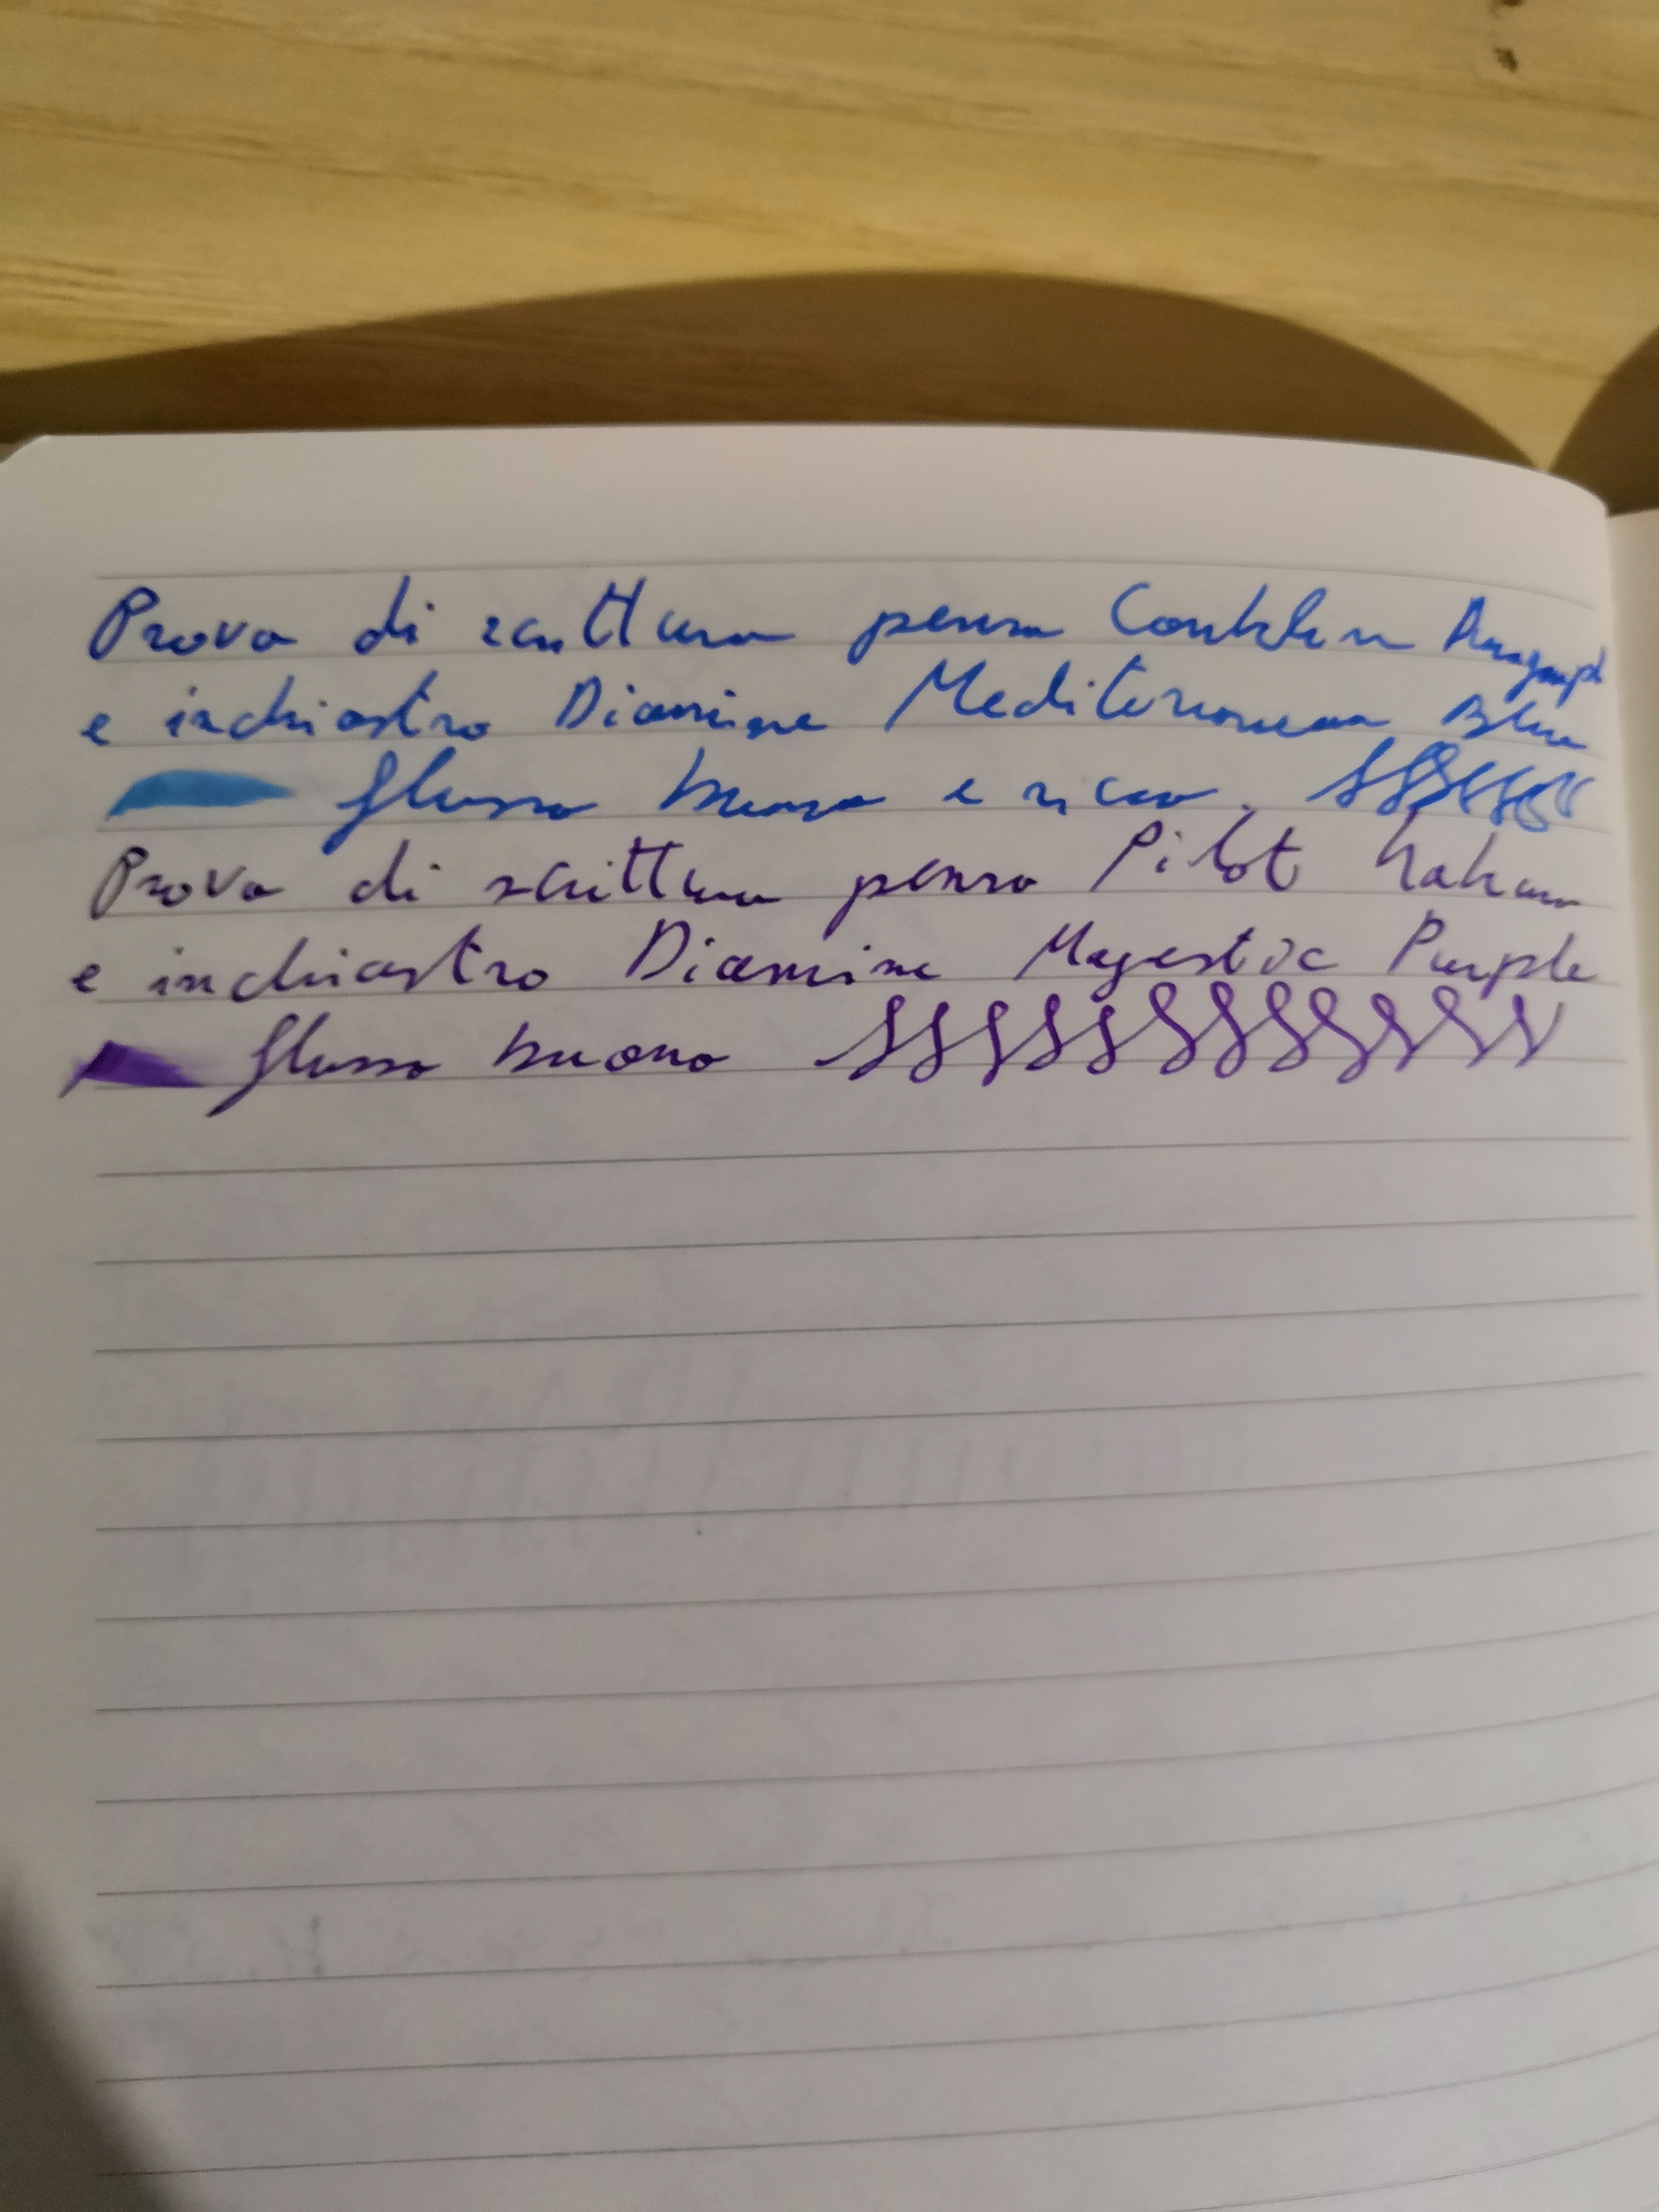 Prova di scrittura penna Conklin Duragraph
e inchiostro Diamine Mediterranean Blue
flusso buono e ricco.
Prova di scrittura penna Pilot Kakuno
e inchiostro Diamine Majestic Purple
flusso buono